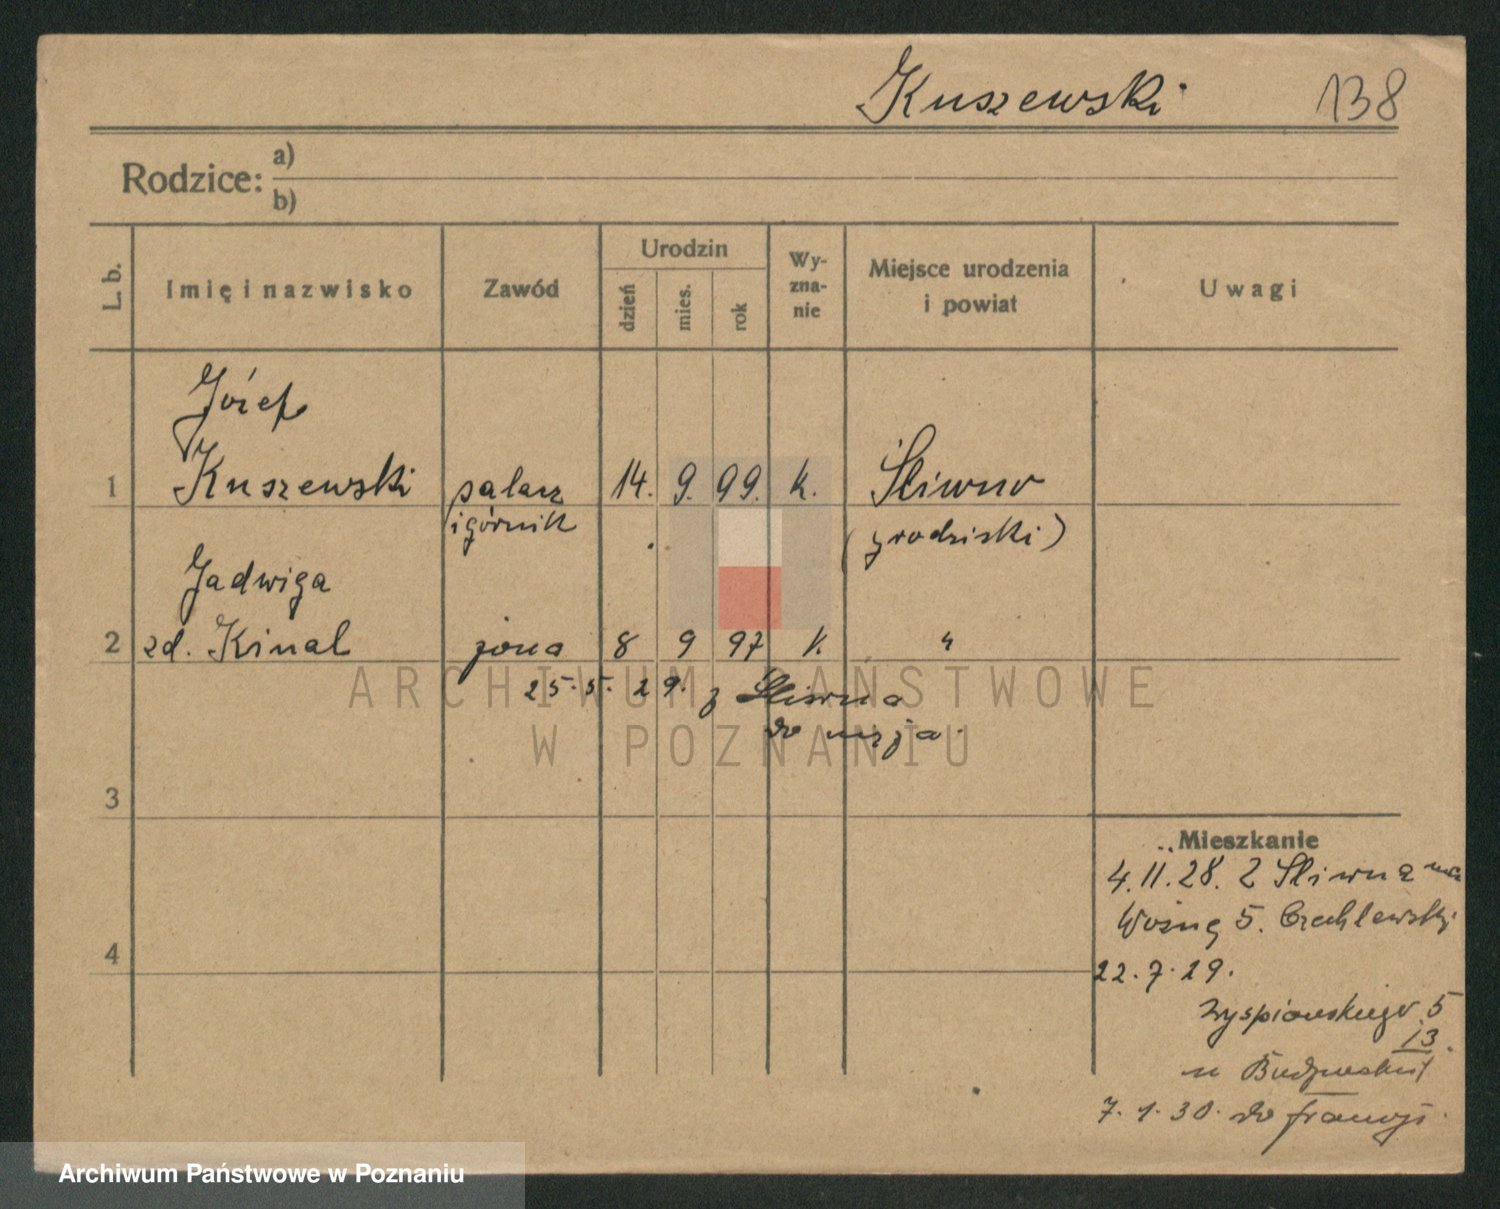 Kuszewski 138
Rodzice: a)
b)
L. b. Imię i nazwisko Zawód Urodzin dzień mies. rok Wy-zna-nie Miejsce urodzenia i powiat Uwagi
Józef
1 Kuszewski palacz 14. 9. 99. k. Śliwno
i górnik (grodziski)
Jadwiga
2 zd. Kinal żona 8 9 97 k. "
25. 5. 29. z Śliwna
do męża.
ARCHIWUM PAŃSTWOWE
W POZNANIU
3
Mieszkanie
4. 11. 28. z Śliwna na
Woźną 5. Czechlewski
4
22. 7. 29.
Wyspiańskiego 5
13.
u
7. 1. 30. do Francji.
Archiwum Państwowe w Poznaniu